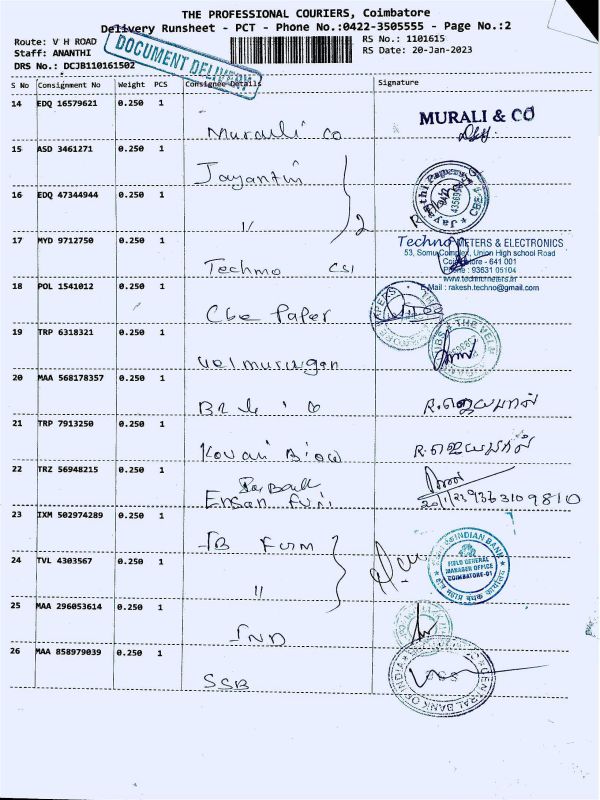 THE PROFESSIONAL COURIERS, Coimbatore
Delivery Runsheet - PCT - Phone No.:0422-3505555 - Page No.:2
Route: V H ROAD
RS No.: 1101615
Staff: ANANTHI
RS Date: 20-Jan-2023
DRS No.: DCJB110161502
DOCUMENT DELIVERY
S No Consignment No Weight PCS Consignee Details Signature
14 EDQ 16579621 0.250 1
Murauli co
MURALI & CO
15 ASD 3461271 0.250 1
Jayanthi
16 EDQ 47344944 0.250 1
11 2
17 MYD 9712750 0.250 1
Techmo CSI
Techno METERS & ELECTRONICS
53, Somu Complex, Union High school Road
Coimbatore - 641 001
Phone : 93631 05104
www.technometers.in
E-Mail : rakesh.techno@gmail.com
18 POL 1541012 0.250 1
Cbe Paper
19 TRP 6318321 0.250 1
velmurugan
20 MAA 568178357 0.250 1
R.ஜெயபால்
21 TRP 7913250 0.250 1
Kovai
R.ஜெயபால்
22 TRZ 56948215 0.250 1
20/1/23 9363109810
23 IXM 502974289 0.250 1
IB Furm
INDIAN BANK
FIELD GENERAL
MANAGER OFFICE
COIMBATORE-01
24 TVL 4303567 0.250 1
11
25 MAA 296053614 0.250 1
IND
26 MAA 858979039 0.250 1
SSB
CENTRAL BANK OF INDIA